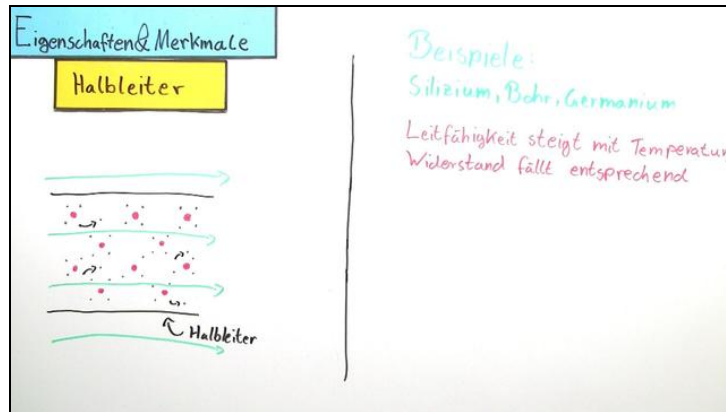 Eigenschaften & Merkmale
Halbleiter
Halbleiter
Beispiele:
Silizium, Bohr, Germanium
Leitfähigkeit steigt mit Temperatur
Widerstand fällt entsprechend